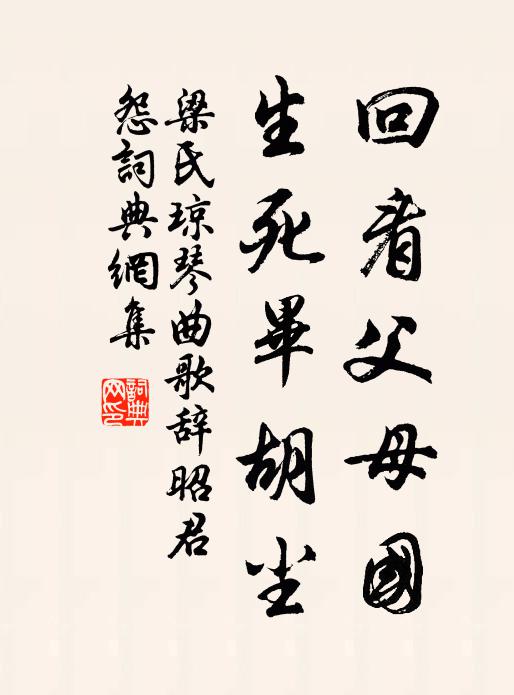 回看父母國
生死畢胡尘
梁氏琼琴曲歌辞昭君
怨詞典網集
詞典
网印